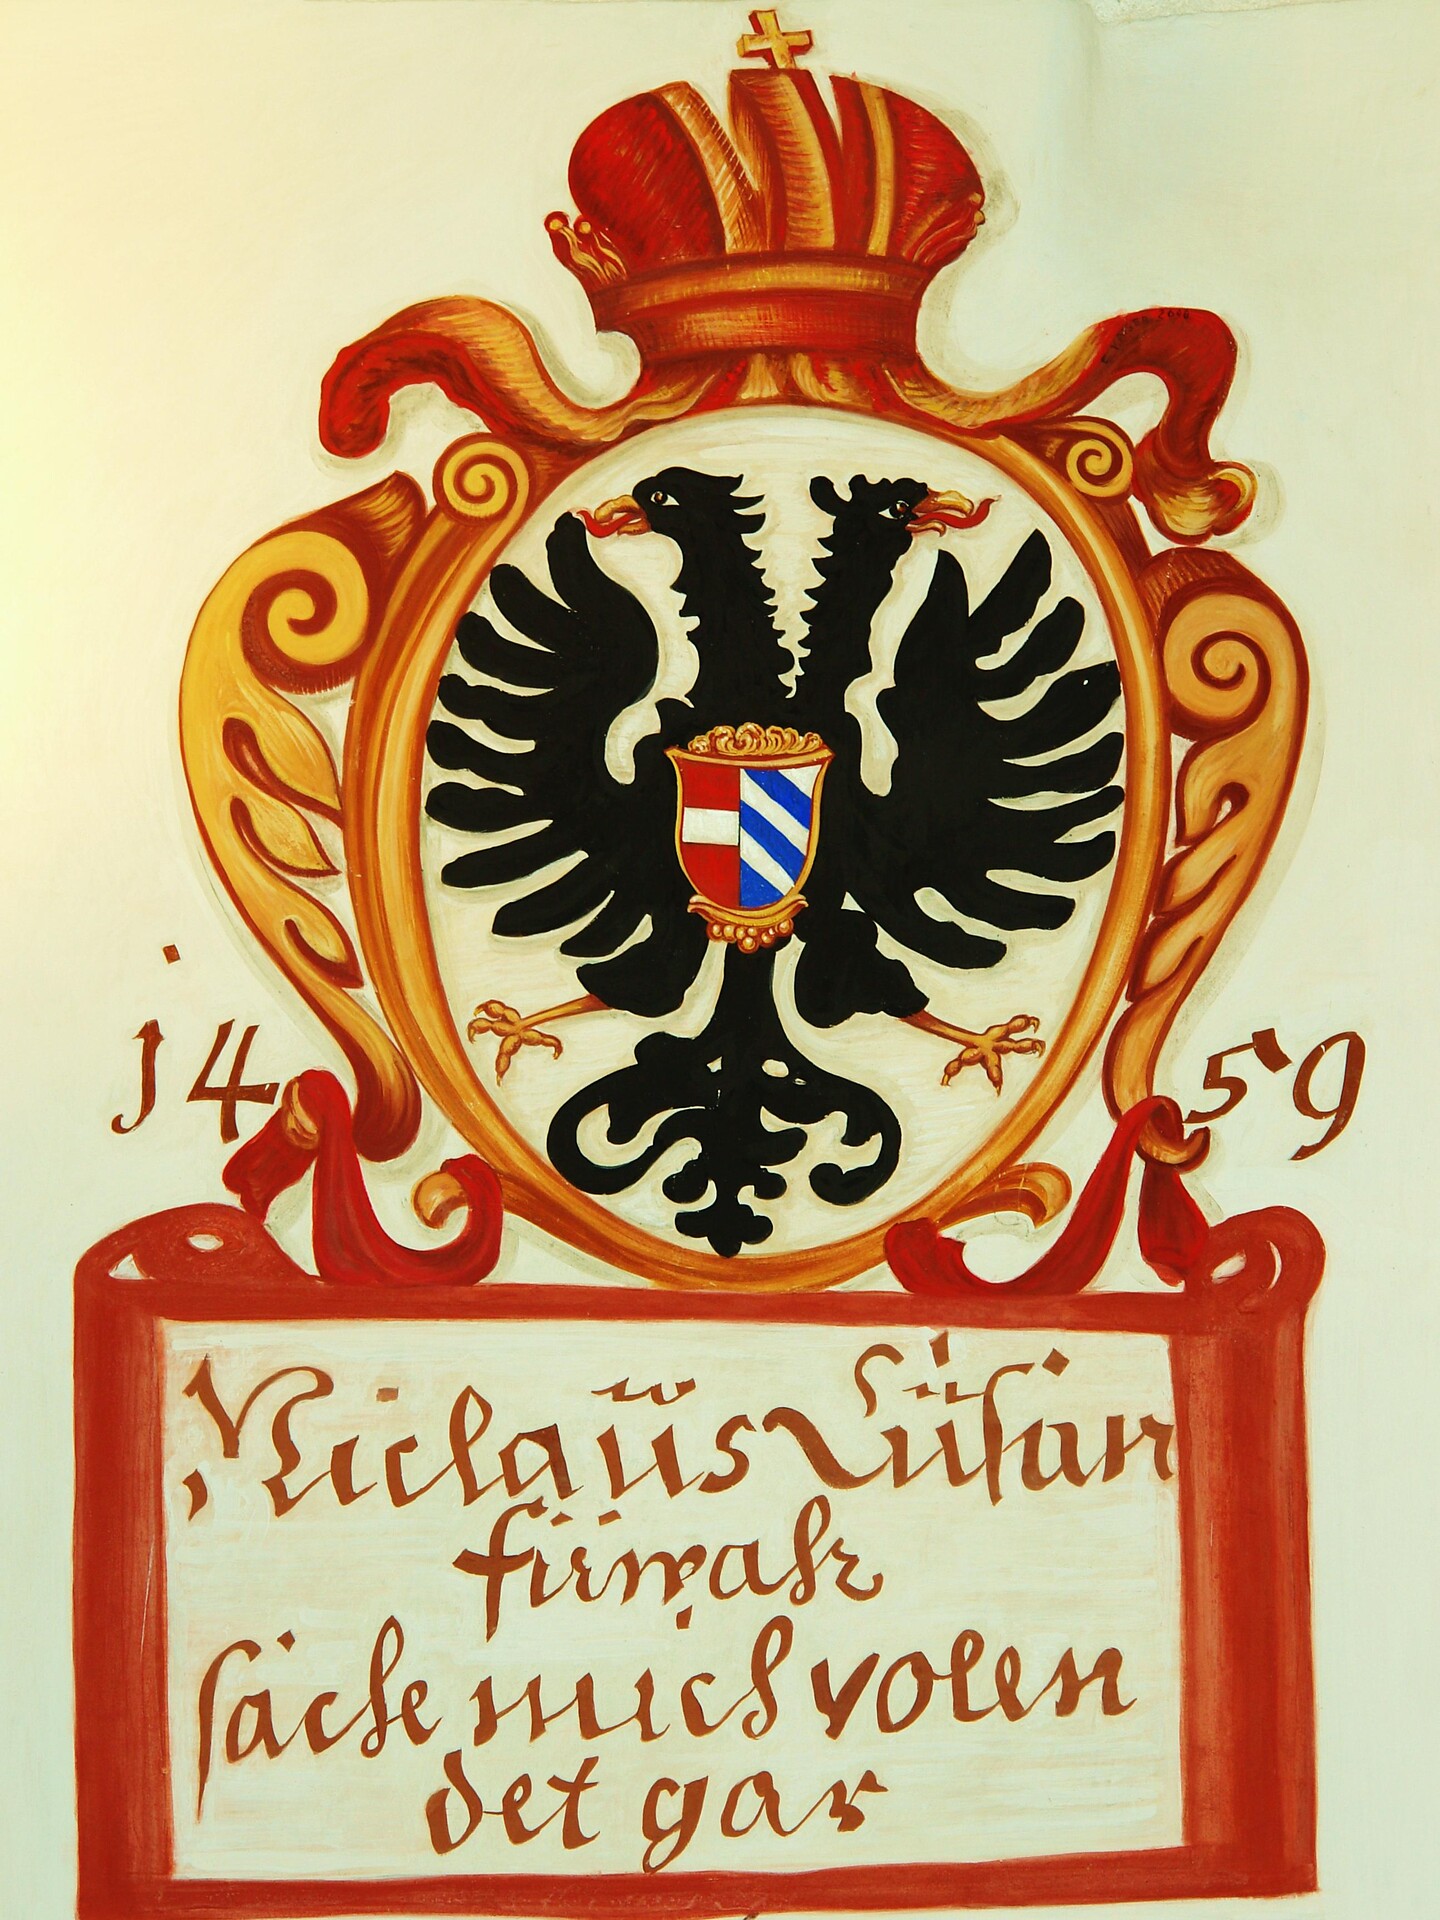 j4 59
Niclaüs Lüsan
fürwahr
sache mich volen
det gar